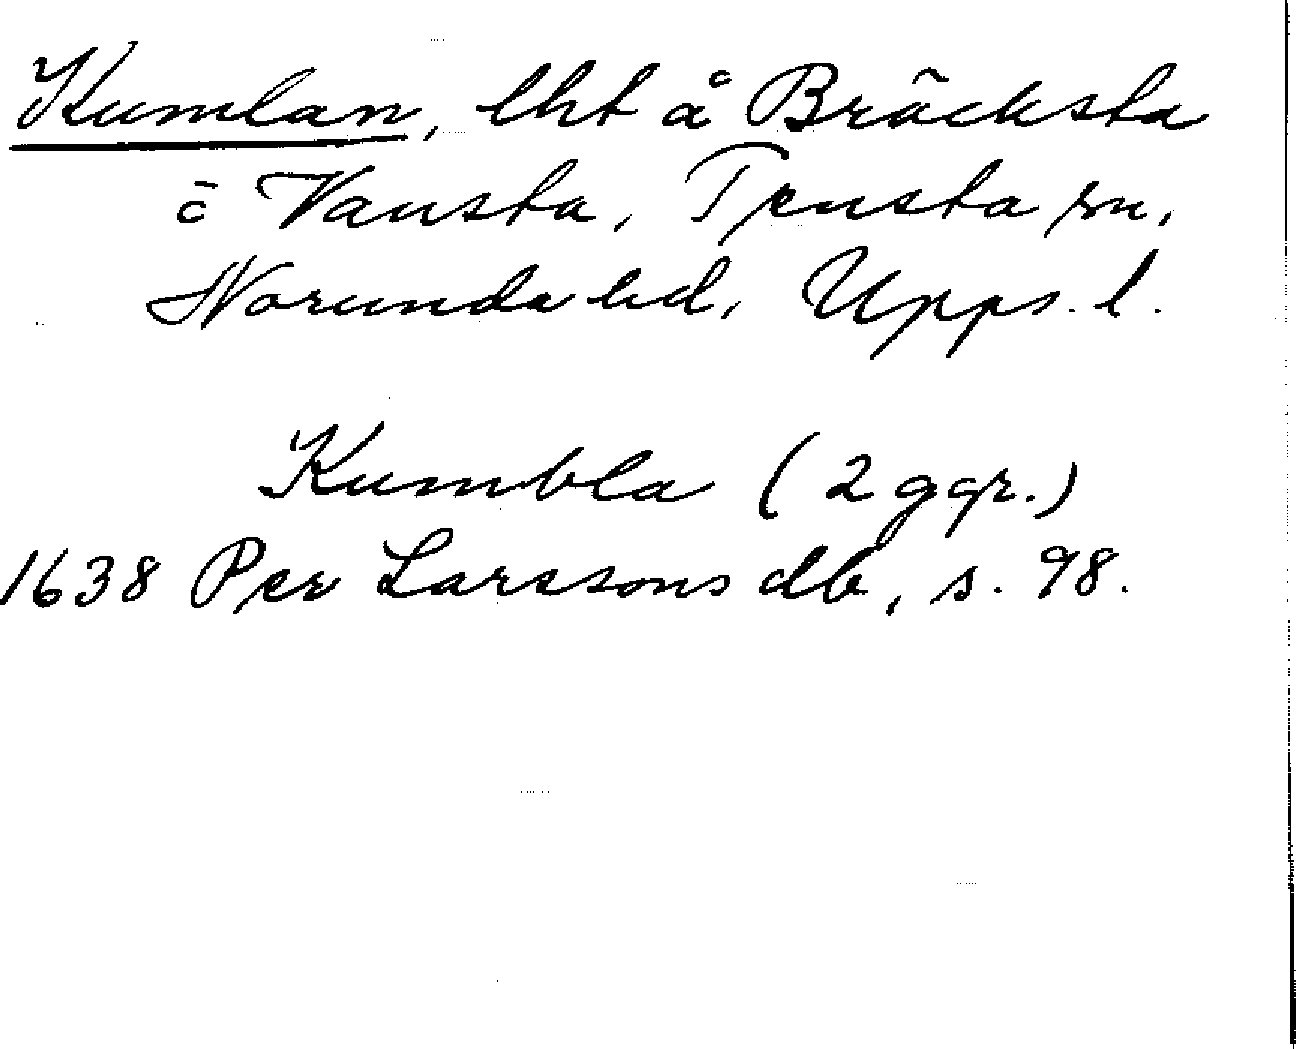 Kumlan, lht å Bräcksta
o Vansta, Tensta sn,
Norunda hd, Upps. l.
Kumbla (2 ggr.)
1638 Per Larssons db, s. 98.